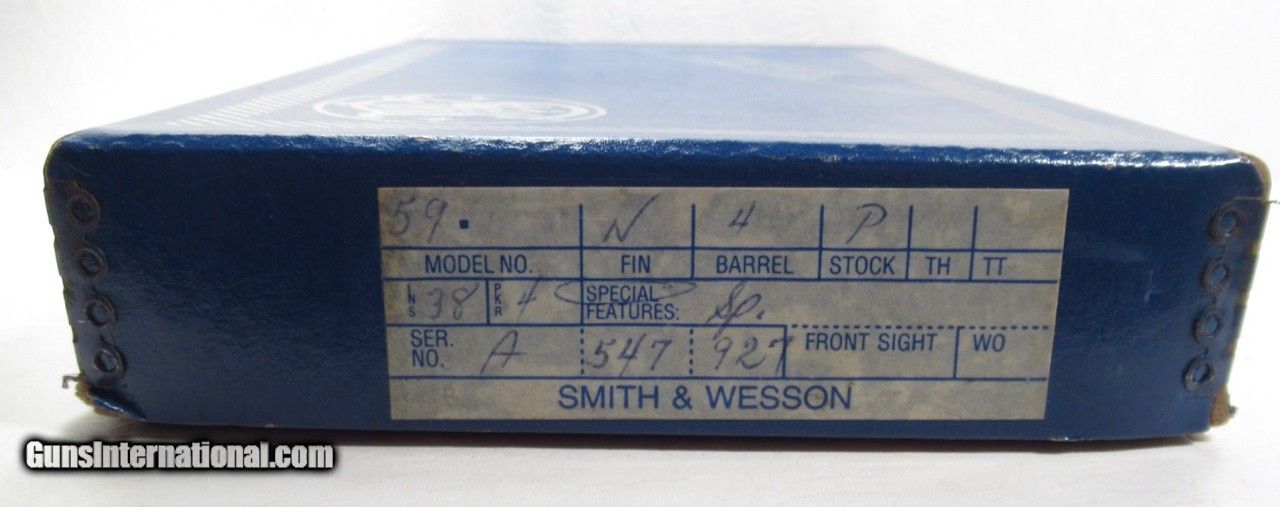 59. N 4 P
MODEL NO. FIN BARREL STOCK TH TT
INS 38 PKR 4 SPECIAL FEATURES: Sp.
SER. NO. A 547 927 FRONT SIGHT WO
SMITH & WESSON
GunsInternational.com